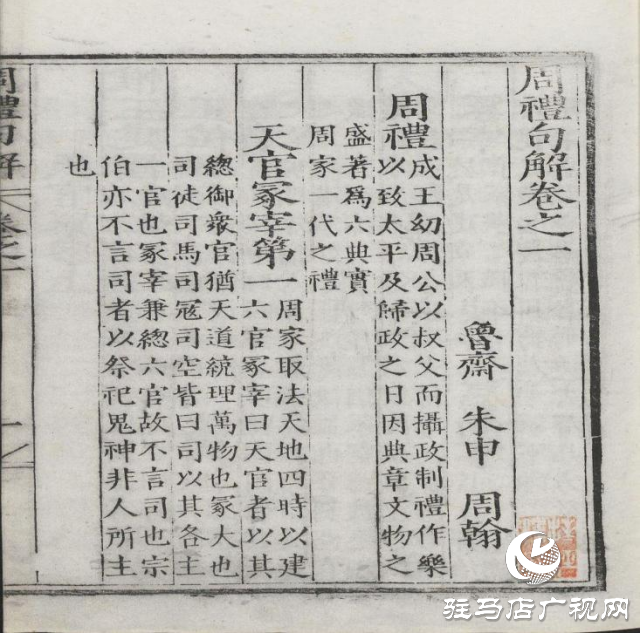 周禮句解卷之一
魯齋 朱申 周翰
周禮
成王幼周公以叔父而攝政制禮作樂
以致太平及歸政之日因典章文物之
盛著爲六典實
周家一代之禮
天官冢宰第一
周家取法天地四時以建
六官冢宰曰天官者以其
總御衆官猶天道統理萬物也冢大也
司徒司馬司寇司空皆曰司以其各主
一官也冢宰兼總六官故不言司也宗
伯亦不言司者以祭祀鬼神非人所主
也
周禮句解 卷之一
一
驻马店广视网